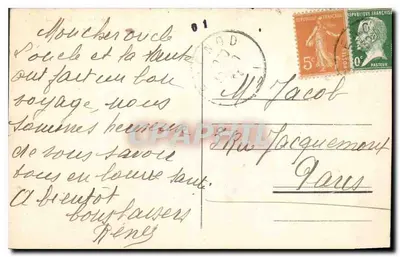 01
Mon cher oncle
Soucle et la tante
ont fait un bon
voyage, nous
sommes heureux
de vous savoir
tous en bonne santé
A bientôt
bons baisers
René
REPUBLIQUE FRANÇAISE
5c
REPUBLIQUE FRANÇAISE
PASTEUR
Mr Jacob
Rue Jacquemont
Paris
CPAPHIL.COM